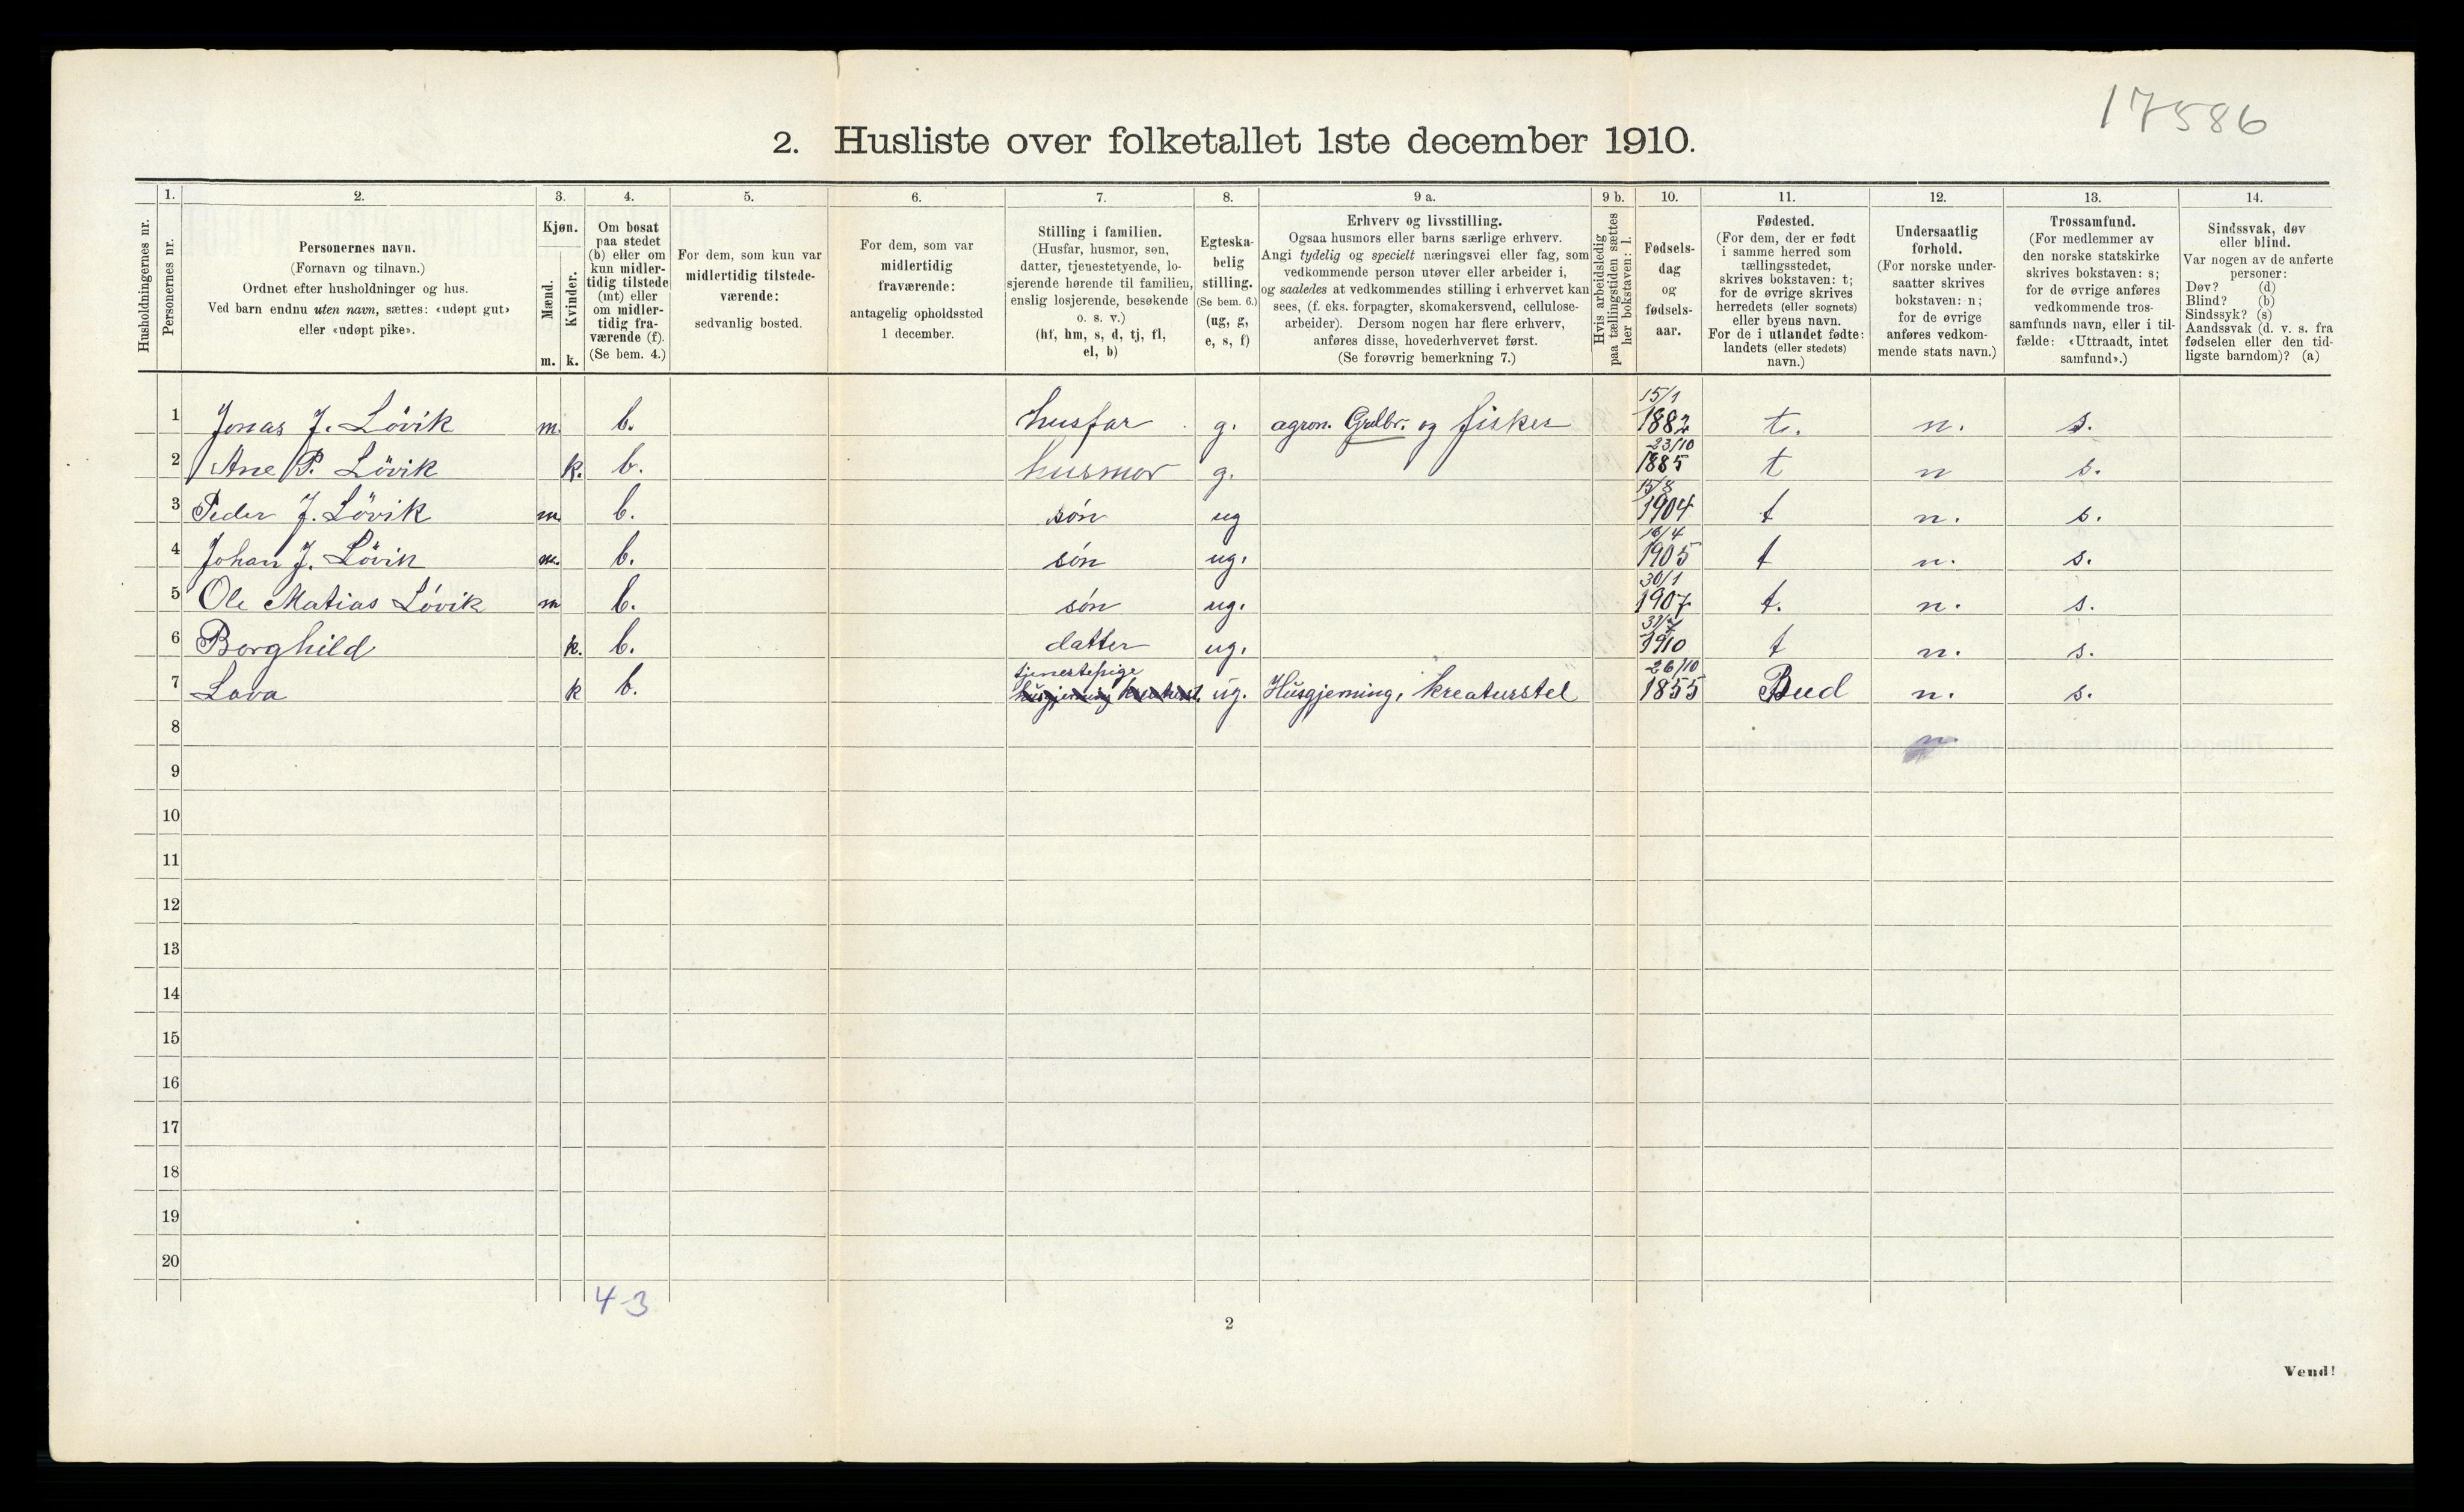 17586
2. Husliste over folketallet 1ste december 1910.
Husholdningernes nr.
1.
Personernes nr.
2.
Personernes navn.
(Fornavn og tilnavn.)
Ordnet efter husholdninger og hus.
Ved barn endnu uten navn, sættes: «udøpt gut»
eller «udøpt pike».
3.
Kjøn.
Mænd.
Kvinder.
m. k.
4.
Om bosat
paa stedet
(b) eller om
kun midler-
tidig tilstede
(mt) eller
om midler-
tidig fra-
værende (f).
(Se bem. 4.)
5.
For dem, som kun var
midlertidig tilstede-
værende:
sedvanlig bosted.
6.
For dem, som var
midlertidig
fraværende:
antagelig opholdssted
1 december.
7.
Stilling i familien.
(Husfar, husmor, søn,
datter, tjenestetyende, lo-
sjerende hørende til familien,
enslig losjerende, besøkende
o. s. v.)
(hf, hm, s, d, tj, fl,
el, b)
8.
Egteska-
belig
stilling.
(Se bem. 6.)
(ug, g,
e, s, f)
9 a.
Erhverv og livsstilling.
Ogsaa husmors eller barns særlige erhverv.
Angi tydelig og specielt næringsvei eller fag, som
vedkommende person utøver eller arbeider i,
og saaledes at vedkommendes stilling i erhvervet kan
sees, (f. eks. forpagter, skomakersvend, cellulose-
arbeider). Dersom nogen har flere erhverv,
anføres disse, hovederhvervet først.
(Se forøvrig bemerkning 7.)
9 b.
Hvis arbeidsledig
paa tællingstiden sættes
her bokstaven: l.
10.
Fødsels-
dag
og
fødsels-
aar.
11.
Fødested.
(For dem, der er født
i samme herred som
tællingsstedet,
skrives bokstaven: t;
for de øvrige skrives
herredets (eller sognets)
eller byens navn.
For de i utlandet fødte:
landets (eller stedets)
navn.)
12.
Undersaatlig
forhold.
(For norske under-
saatter skrives
bokstaven: n;
for de øvrige
anføres vedkom-
mende stats navn.)
13.
Trossamfund.
(For medlemmer av
den norske statskirke
skrives bokstaven: s;
for de øvrige anføres
vedkommende tros-
samfunds navn, eller i til-
fælde: «Uttraadt, intet
samfund».)
14.
Sindssvak, døv
eller blind.
Var nogen av de anførte
personer:
Døv? (d)
Blind? (b)
Sindssyk? (s)
Aandssvak (d. v. s. fra
fødselen eller den tid-
ligste barndom)? (a)
1 Jonas J. Lövik m. b. husfar g. agron. Grdbr. og fisker 15/1 1882 t. n. s.
2 Ane P. Lövik k. b. husmor g. 23/10 1885 t n s.
3 Peder J. Lövik m b. són ug 15/8 1904 t n. s.
4 Johan J. Lövik m. b. són ug. 16/4 1905 t n. s.
5 Ole Matias Lóvik m b. són ug. 30/1 1907 t. n. s.
6 Borghild k. b. datter ug. 31/7 1910 t n. s.
7 Lava k b. tjenestepige ug. Husgjerning, kreaturstel 26/10 1855 Bud n. s.
8 n.
9
10
11
12
13
14
15
16
17
18
19
20
4 3
2
Vend!